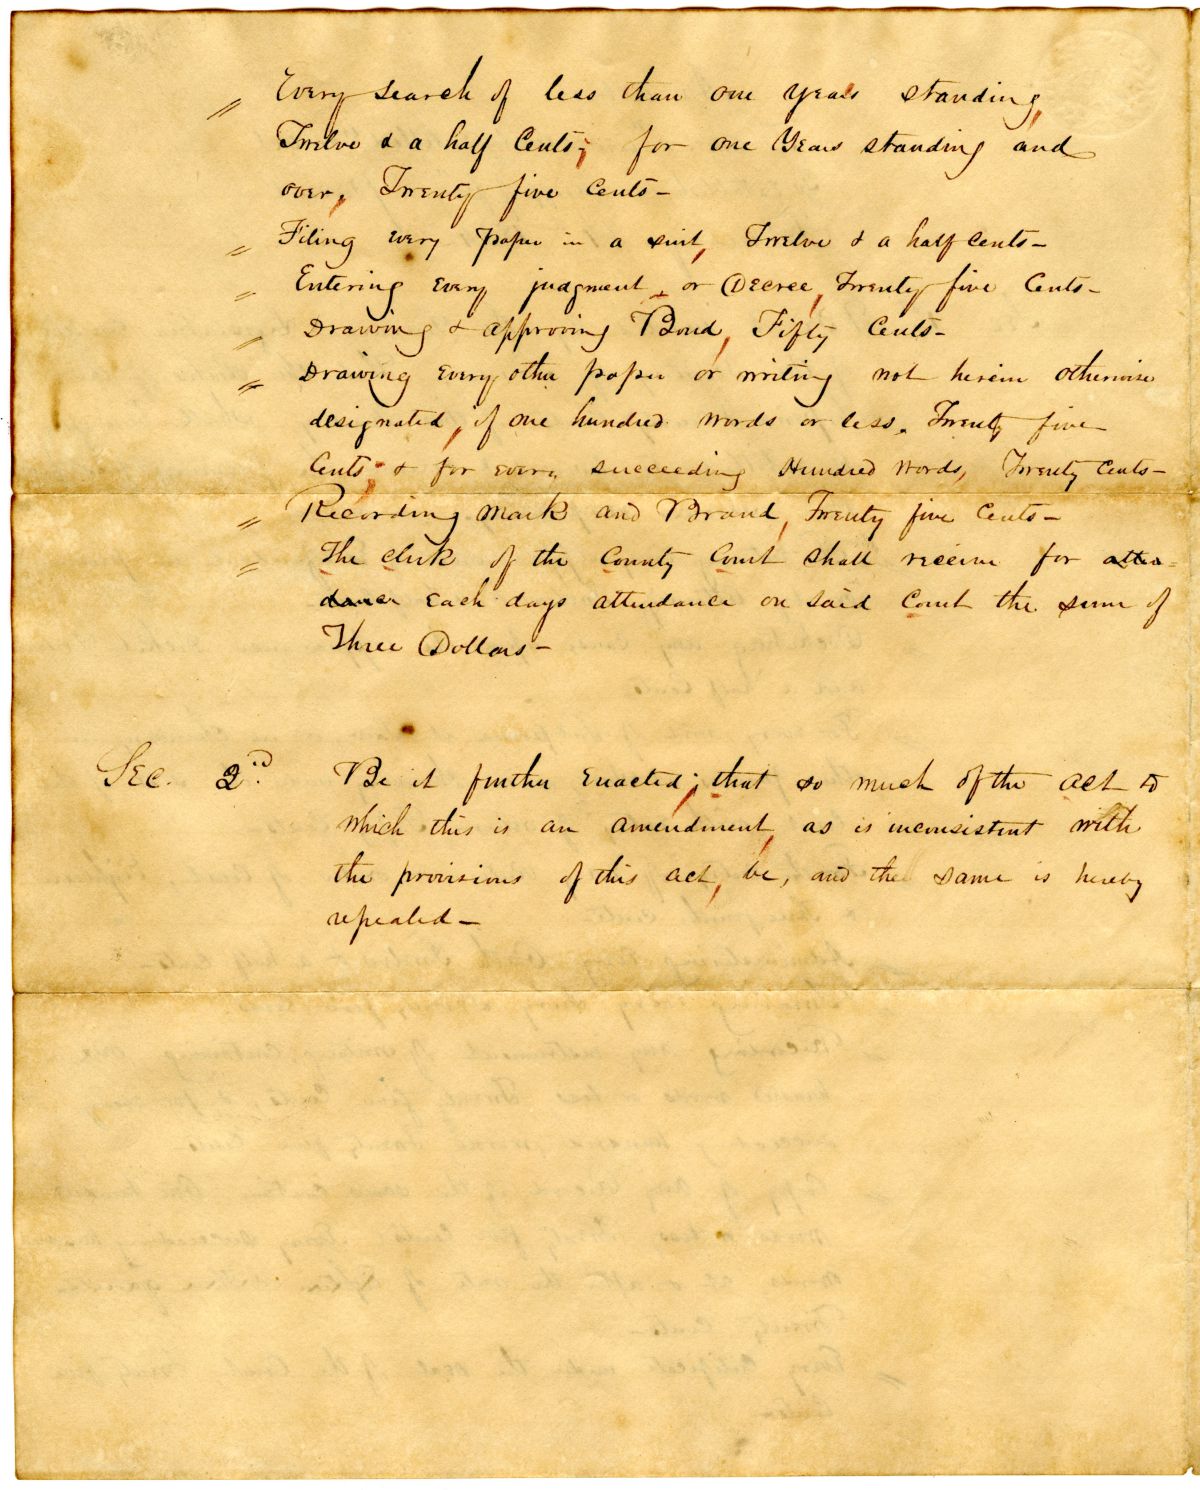 〃 Every search of less than one years standing,
Twelve & a half Cents; for one Years standing and
over, Twenty five Cents—
〃 Filing every paper in a suit, Twelve & a half Cents—
〃 Entering Every judgment, or Decree, Twenty five Cents—
〃 Drawing & approving Bond, Fifty Cents—
〃 Drawing Every other paper or writing not herein otherwise
designated, if one hundred words or less, Twenty five
Cents; & for every succeeding Hundred Words, Twenty Cents—
〃 Recording Mark and Brand, Twenty five Cents—
〃 The clerk of the County Court shall receive for atten=
dance each days attendance on said Court the sum of
Three Dollars—
Sec. 2nd. Be it further Enacted; that so much of the act to
which this is an amendment, as is inconsistent with
the provisions of this act, be, and the same is hereby
repealed—